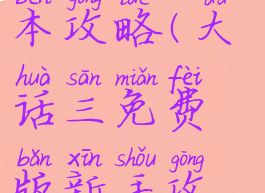 běn gōng lüè dà
本攻略(大
huà sān miǎn fèi
话三免费
bǎn xīn shǒu gōng
版新手攻